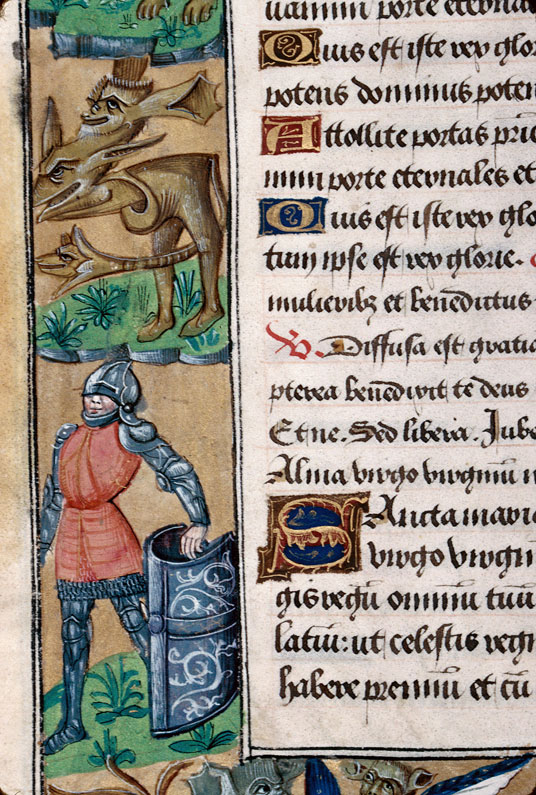 uammi porte eternal
Quis est iste rex glor
potens dominus poten
Attollite portas prin
mini porte eternales et
Quis est iste rex glo
tum ipse est rex glorie.
mulieribꝫ et benedictus
V. Diffusa est gratia
pterea benedixit te deus
Et ne. Sed libera. Jube
Alma virgo virginũ
Sancta maria
virgo virgin
gis regũ omniũ tuũ
latiũ: ut celestis regn
habere premiũ et cũ